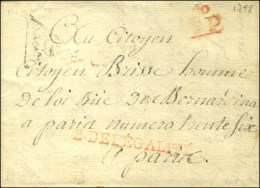 1798
Au Citoyen
Citoyen Brisse homme
de loi rüe des Bernardins
a paris numero trente six
DELEGALITE
a paris